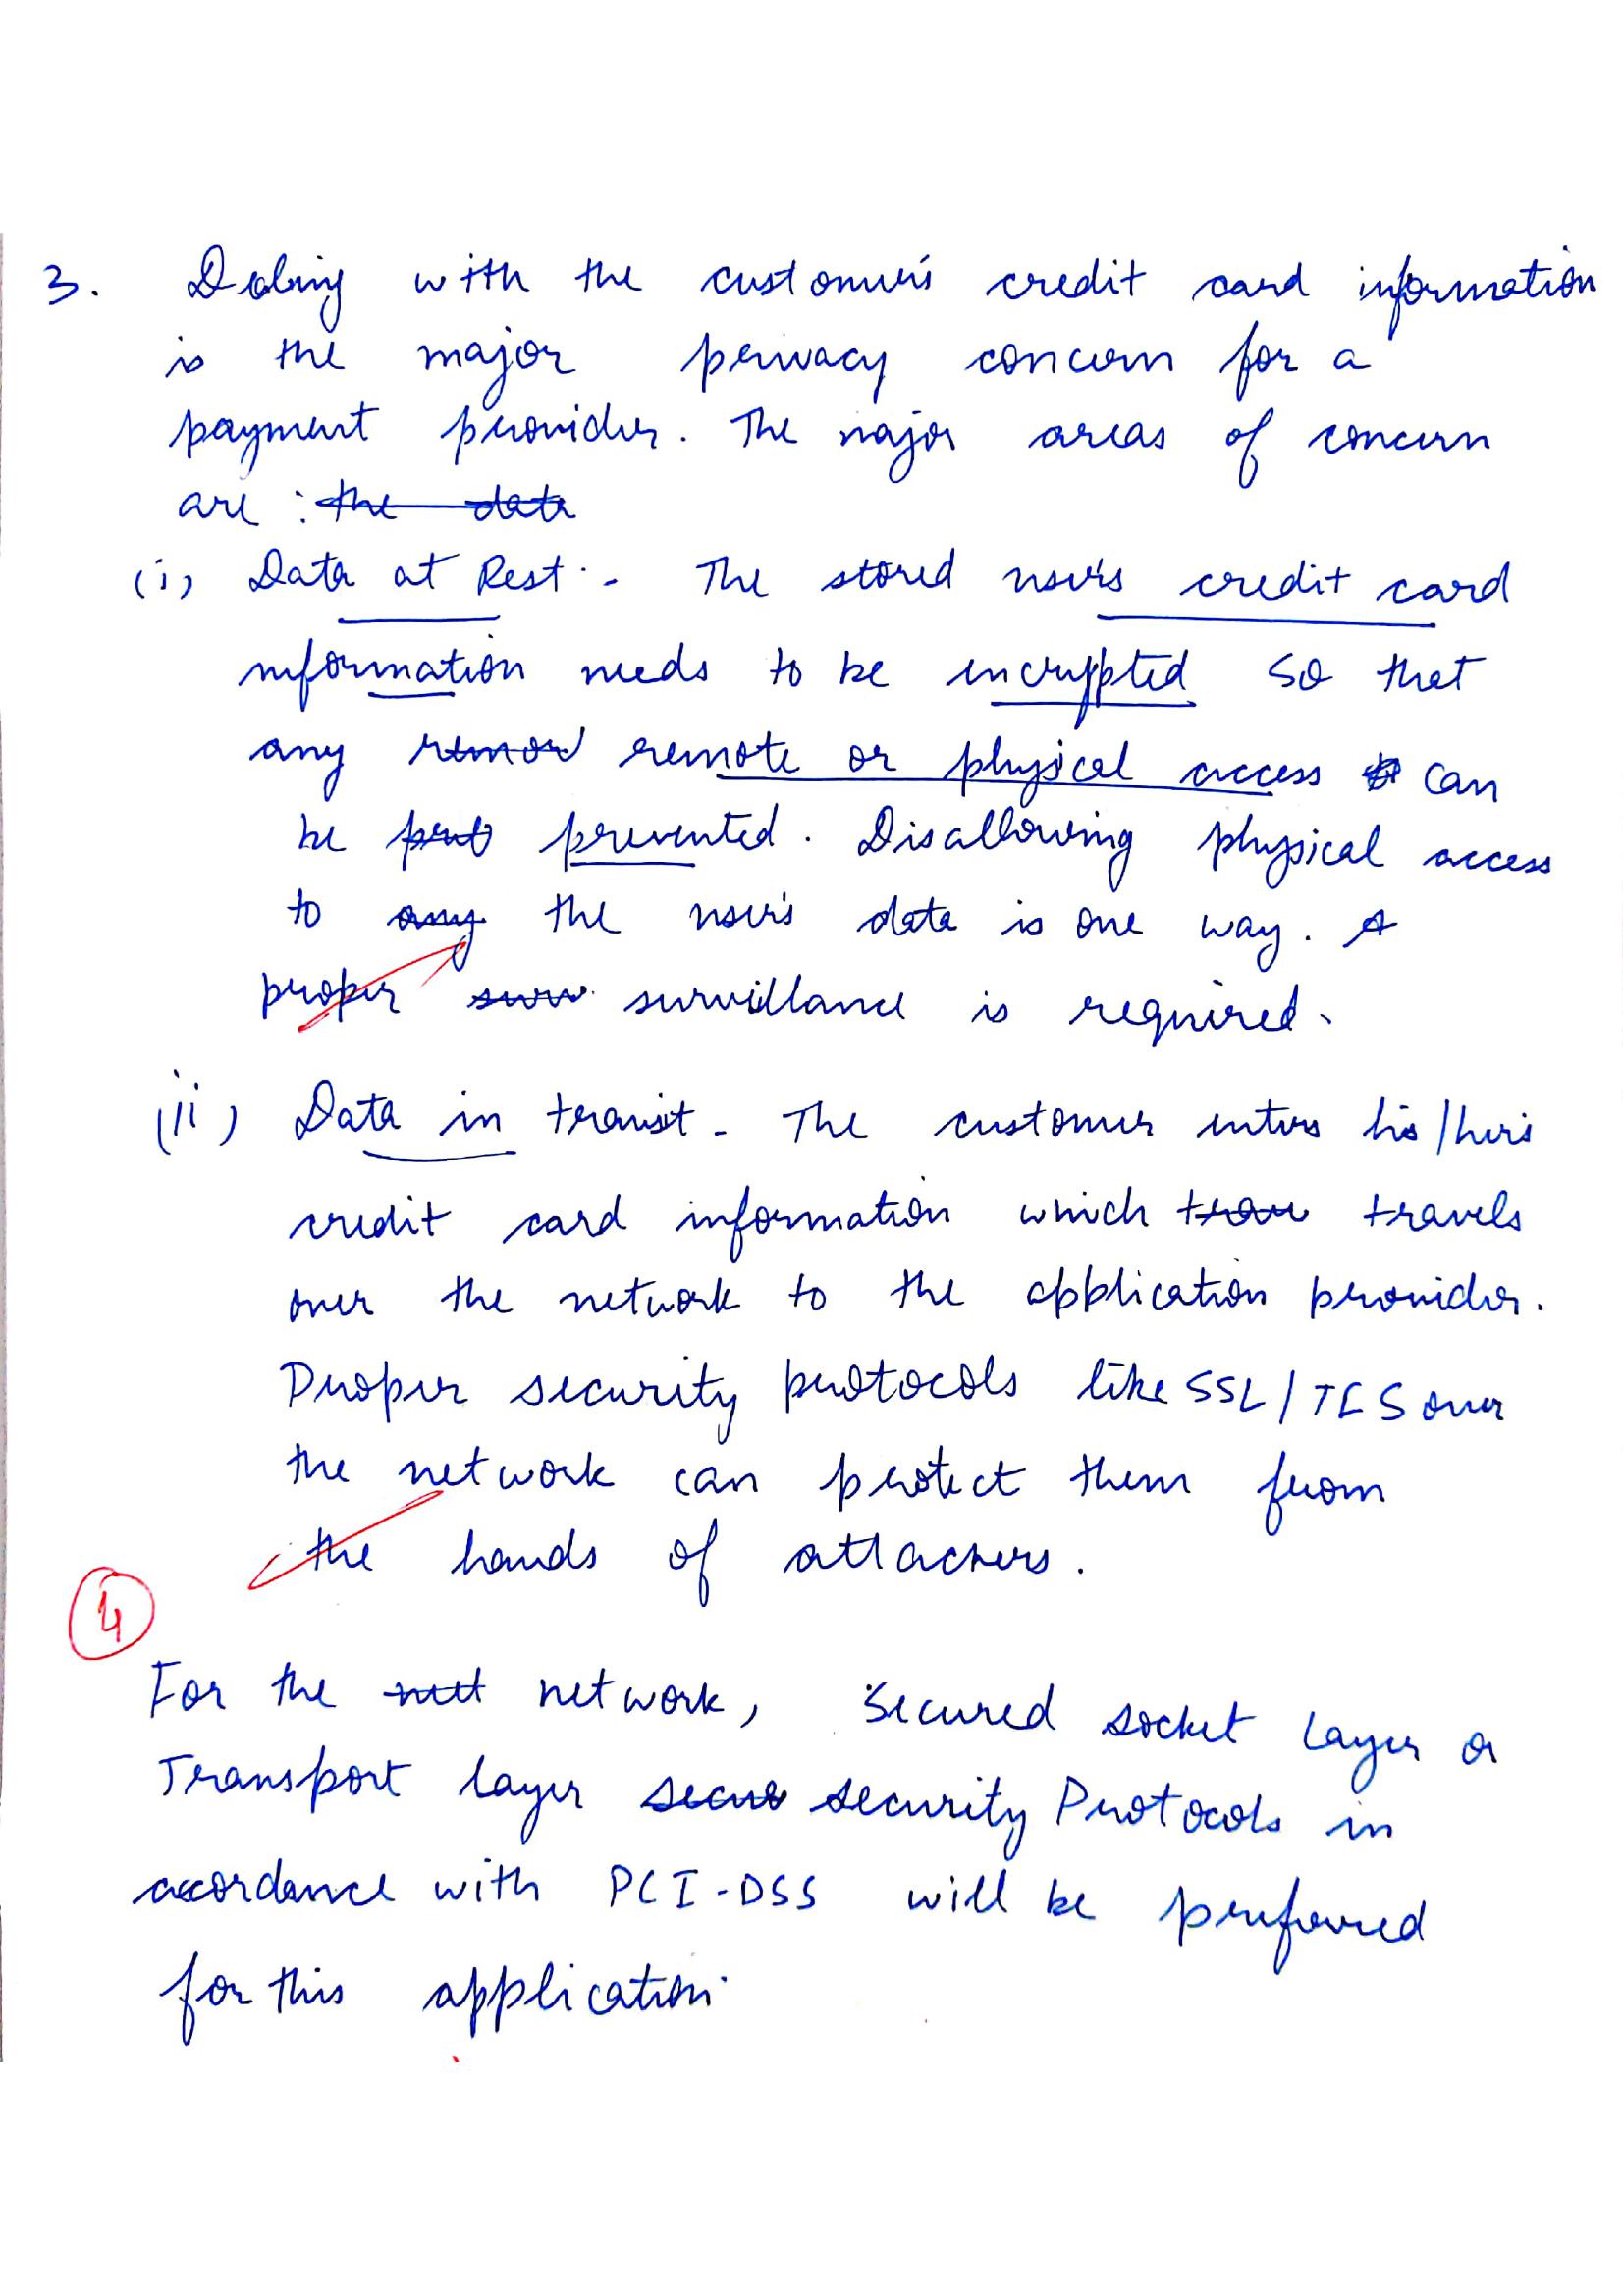 3. Dealing with the customer's credit card information
is the major privacy concern for a
payment provider. The major areas of concern
are : the data
(i) Data at Rest - The stored user's credit card
information needs to be encrypted so that
any remov remote or physical access can
be prev prevented. Disallowing physical access
to any the user's data is one way. A
proper surv survillance is required.
(ii) Data in transit - The customer enters his/her's
credit card information which trav travels
over the network to the application provider.
Proper security protocols like SSL/TLS over
the network can protect them from
the hands of attackers.
4
For the nett network, secured socket Layer or
Transport layer secur security Protocols in
accordance with PCI-DSS will be preferred
for this application.